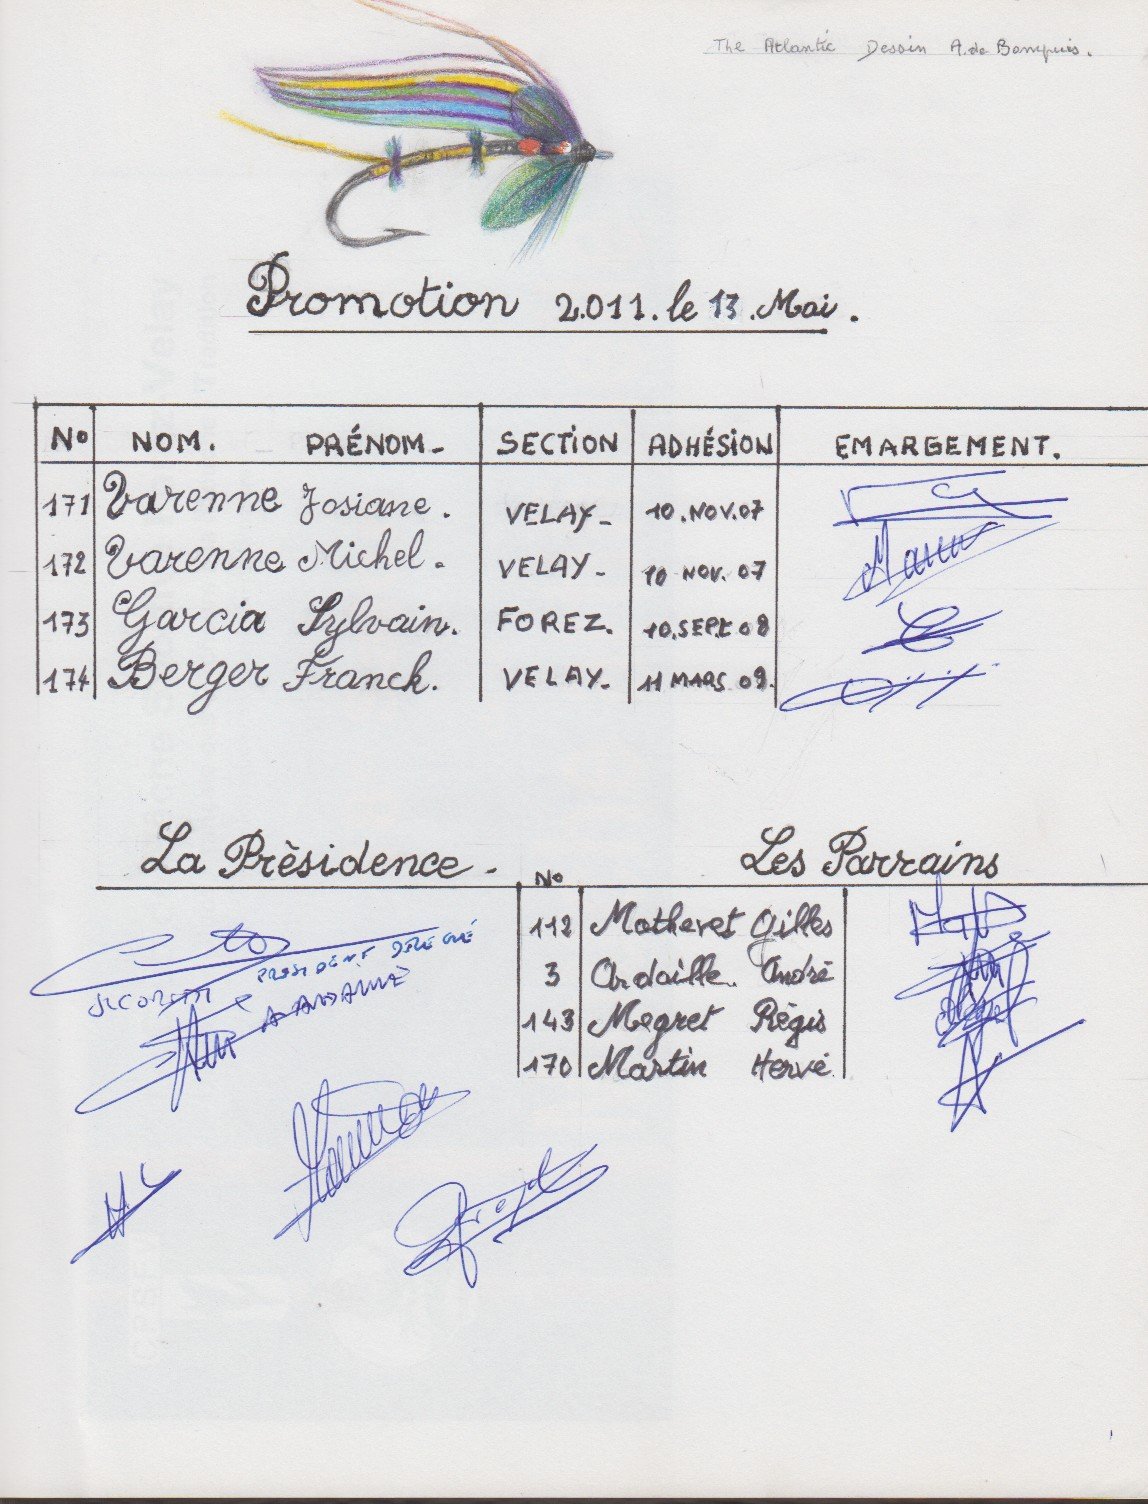 The Atlantic Dessin A. de
Promotion 2.011. le 13. Mai.
No NOM. PRÉNOM- SECTION ADHÉSION EMARGEMENT.
171 Varenne Josiane. VELAY- 10.NOV.07
172 Varenne Michel. VELAY- 10 NOV. 07
173 Garcia Sylvain. FOREZ. 10.SEPt 08
174 Berger Franck. VELAY. 11 MARS 09.
La Prèsidence - No Les Parrains
112 Mothevet Gilles
3 Ardaille. André
143 Megret Régis
170 Martin Hervé
PRESIDENT DELEGUÉ